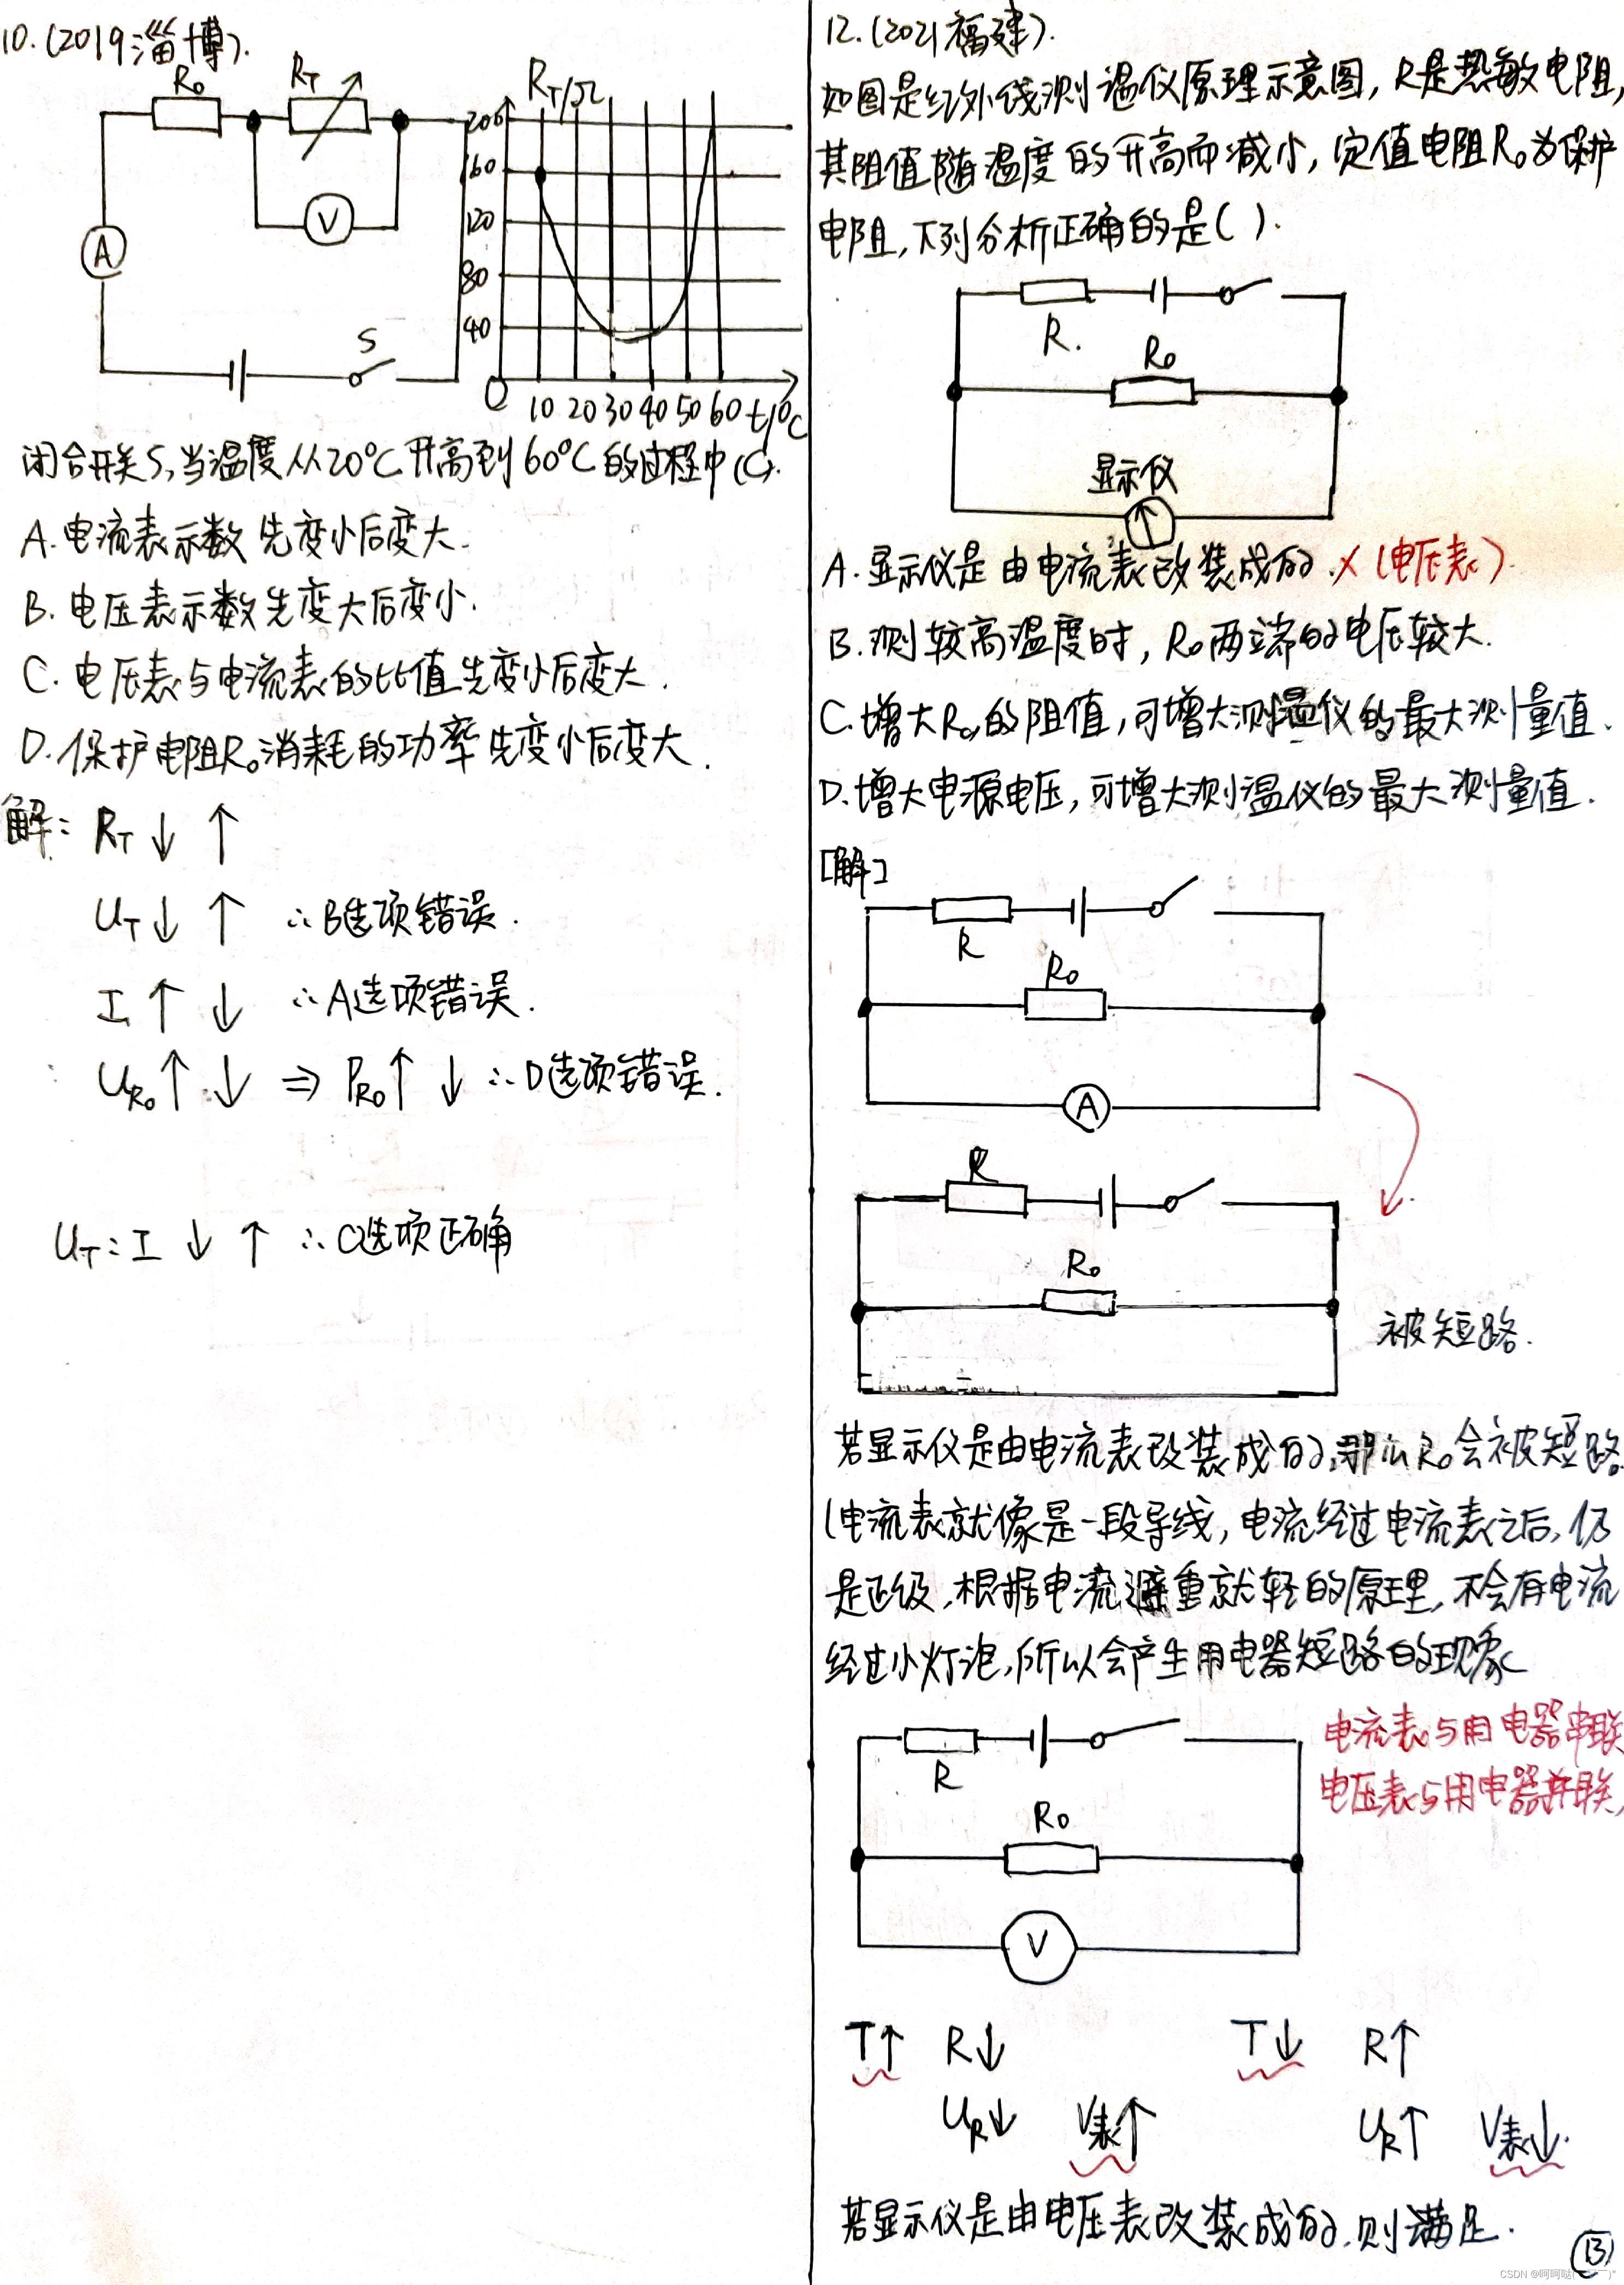 10.(2019淄博).
R₀
R_T
V
A
S
R_T/Ω
200
160
120
80
40
0
10 20 30 40 50 60 t/℃
闭合开关S,当温度从20℃升高到60℃的过程中(C).
A.电流表示数先变小后变大.
B.电压表示数先变大后变小.
C.电压表与电流表的比值先变小后变大.
D.保护电阻R₀消耗的功率先变小后变大.
解: R_T ↓ ↑
U_T ↓ ↑ ∴B选项错误.
I ↑ ↓ ∴A选项错误.
U_R₀ ↑ ↓ ⇒ P_R₀ ↑ ↓ ∴D选项错误.
U_T:I ↓ ↑ ∴C选项正确
12.(2021福建).
如图是红外线测温仪原理示意图,R是热敏电阻,
其阻值随温度的升高而减小,定值电阻R₀为保护
电阻,下列分析正确的是( ).
R.
R₀
显示仪
A.显示仪是由电流表改装成的.×(电压表)
B.测较高温度时,R₀两端的电压较大.
C.增大R₀的阻值,可增大测温仪的最大测量值.
D.增大电源电压,可增大测温仪的最大测量值.
[解]
R
R₀
A
R
R₀
被短路.
若显示仪是由电流表改装成的,那么R₀会被短路.
(电流表就像是一段导线,电流经过电流表之后,仍
是正级,根据电流避重就轻的原理,不会有电流
经过小灯泡,所以会产生用电器短路的现象
电流表与用电器串联
电压表与用电器并联,
R
R₀
V
T↑ R↓ T↓ R↑
U_R↓ V表↑ U_R↑ V表↓.
若显示仪是由电压表改装成的,则满足.
⑬
CSDN @呵呵哒(￣▽￣)"